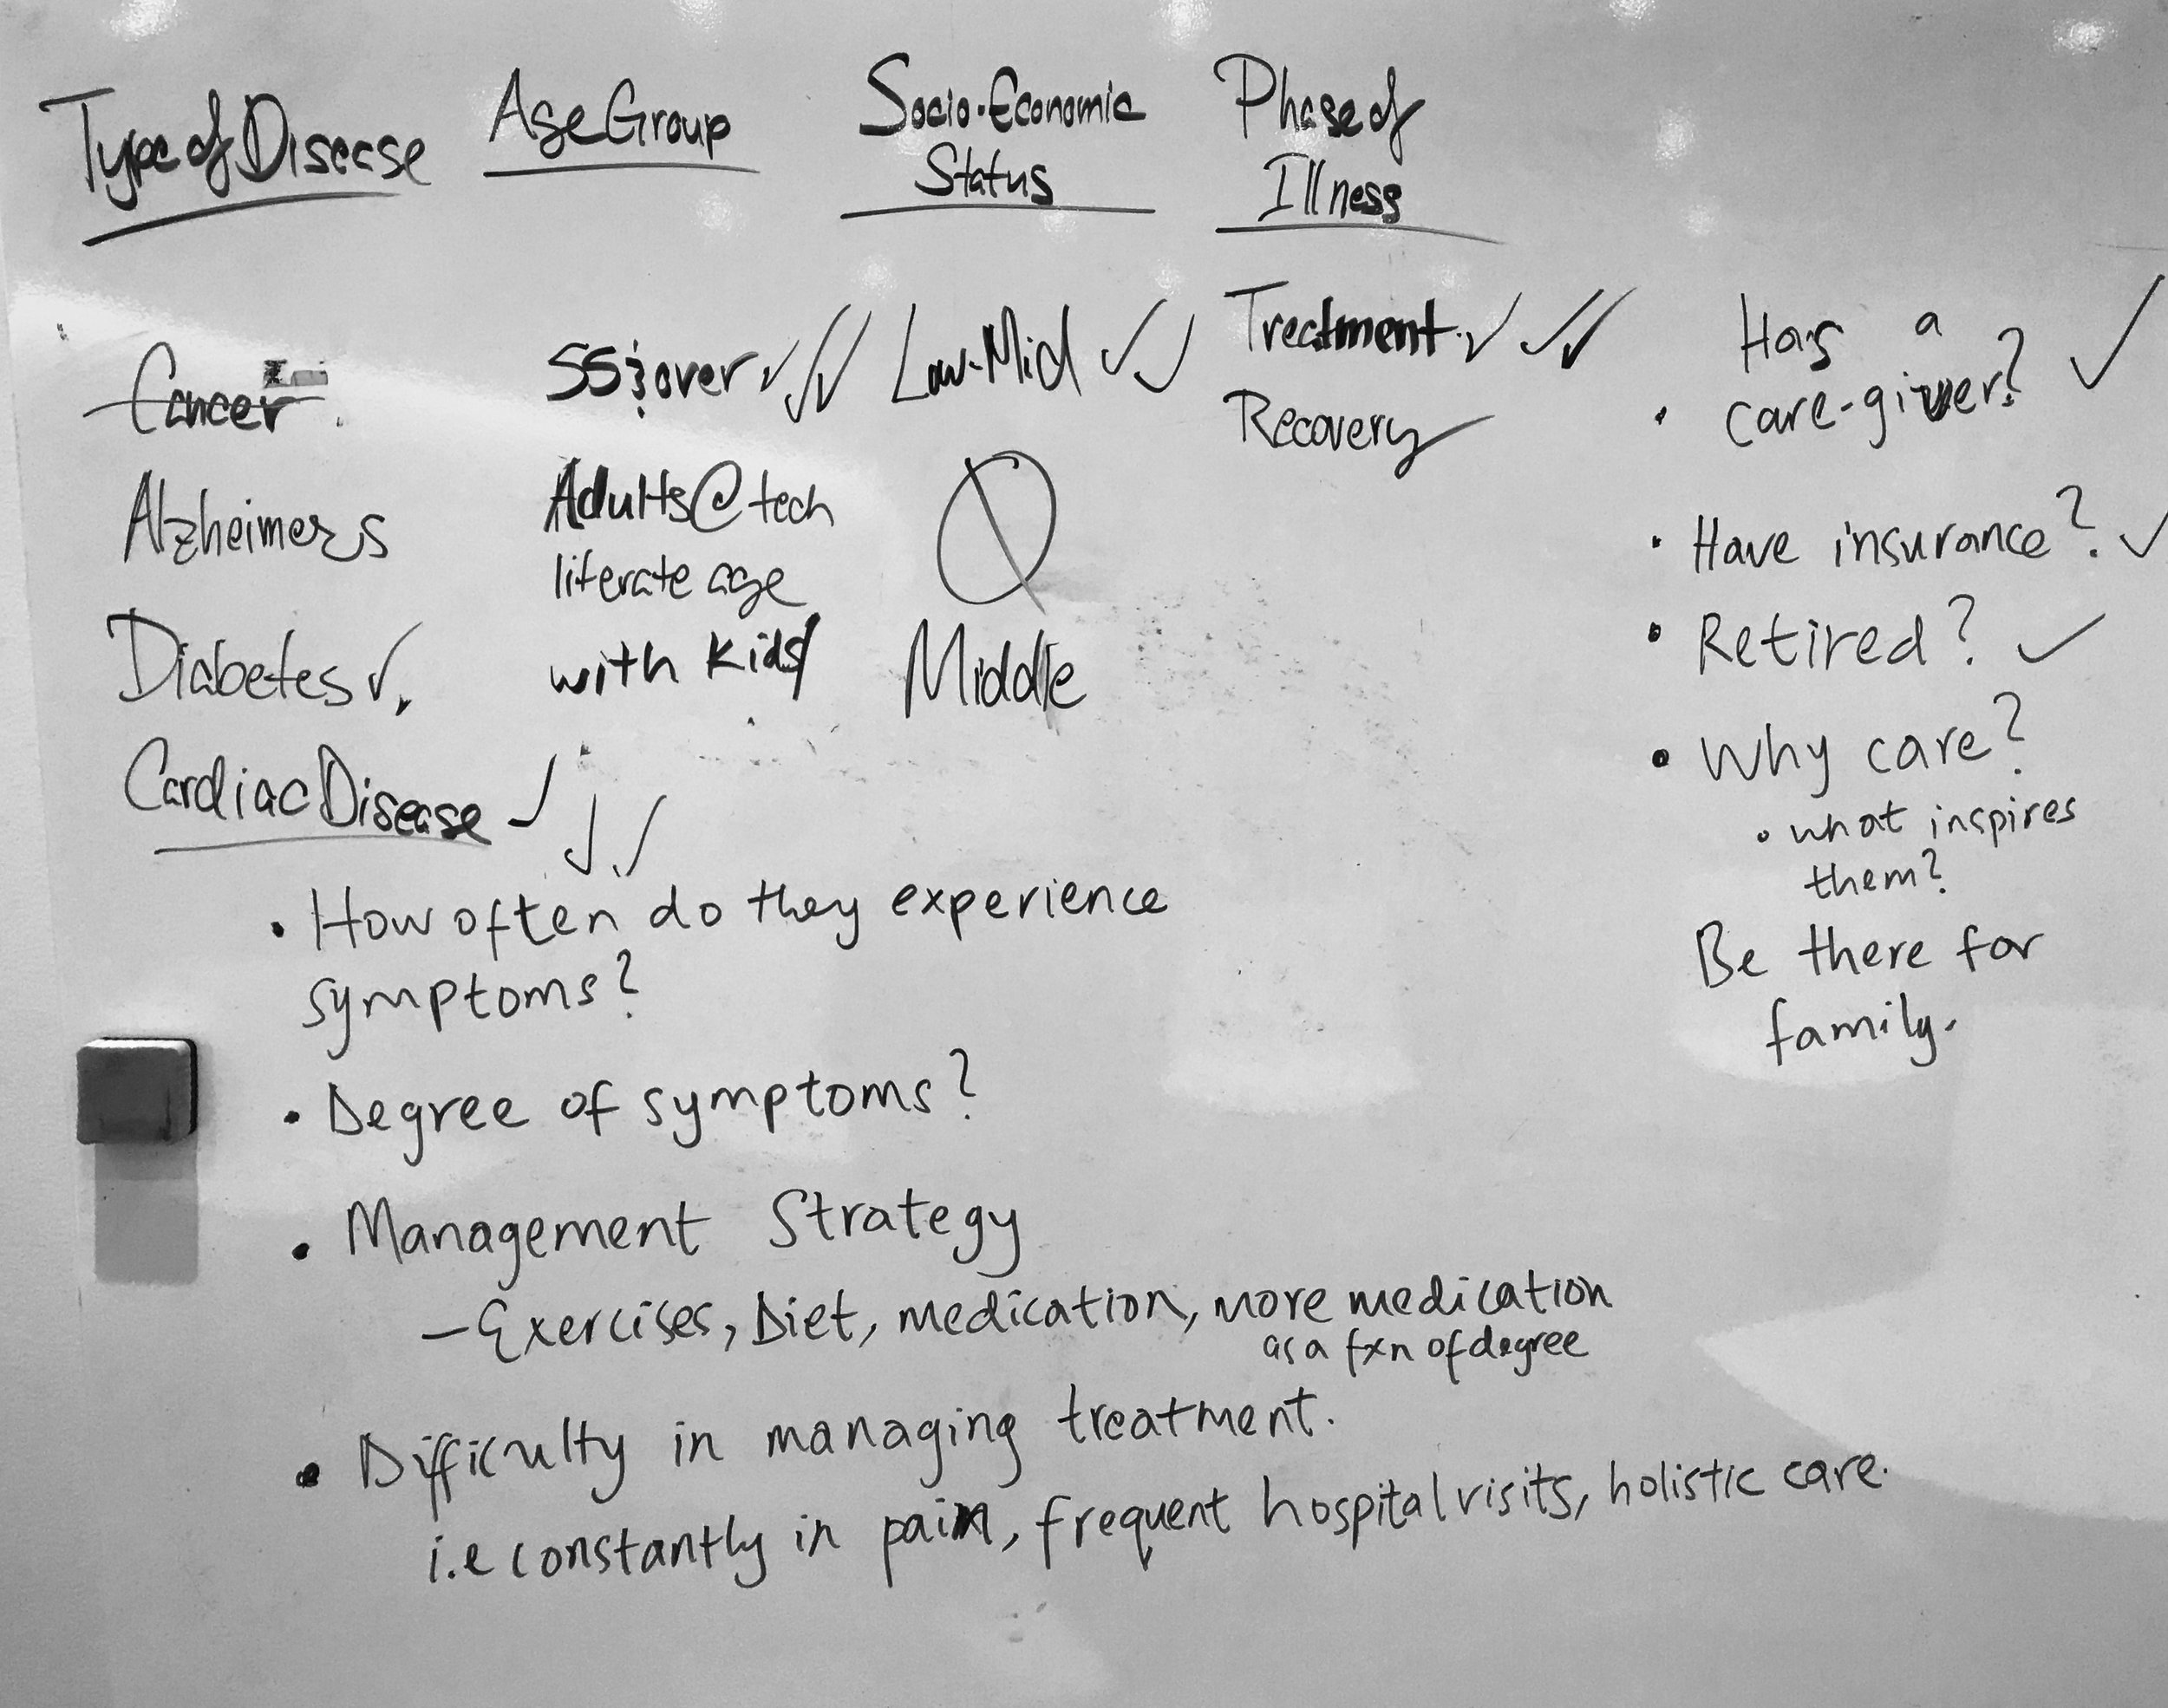 Type of Disease
Age Group
Socio-Economic
Status
Phase of
Illness
Cancer
Alzheimers
Diabetes ✓
Cardiac Disease ✓ ✓ ✓
55 & over ✓ ✓ ✓
Adults @ tech
literate age
with kids
Low-Mid ✓ ✓
Middle
Treatment ✓ ✓ ✓
Recovery
Has a
• care-giver? ✓
• Have insurance? ✓
• Retired? ✓
• Why care?
• what inspires
them?
Be there for
family.
• How often do they experience
symptoms?
• Degree of symptoms?
• Management Strategy
– Exercises, Diet, medication, more medication
as a fxn of degree
• Difficulty in managing treatment.
i.e constantly in pain, frequent hospital visits, holistic care.